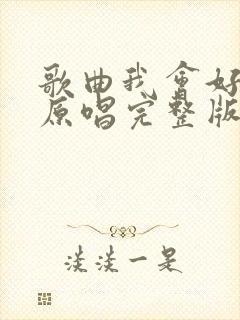 歌曲我会好
原唱完整版
淡淡一是